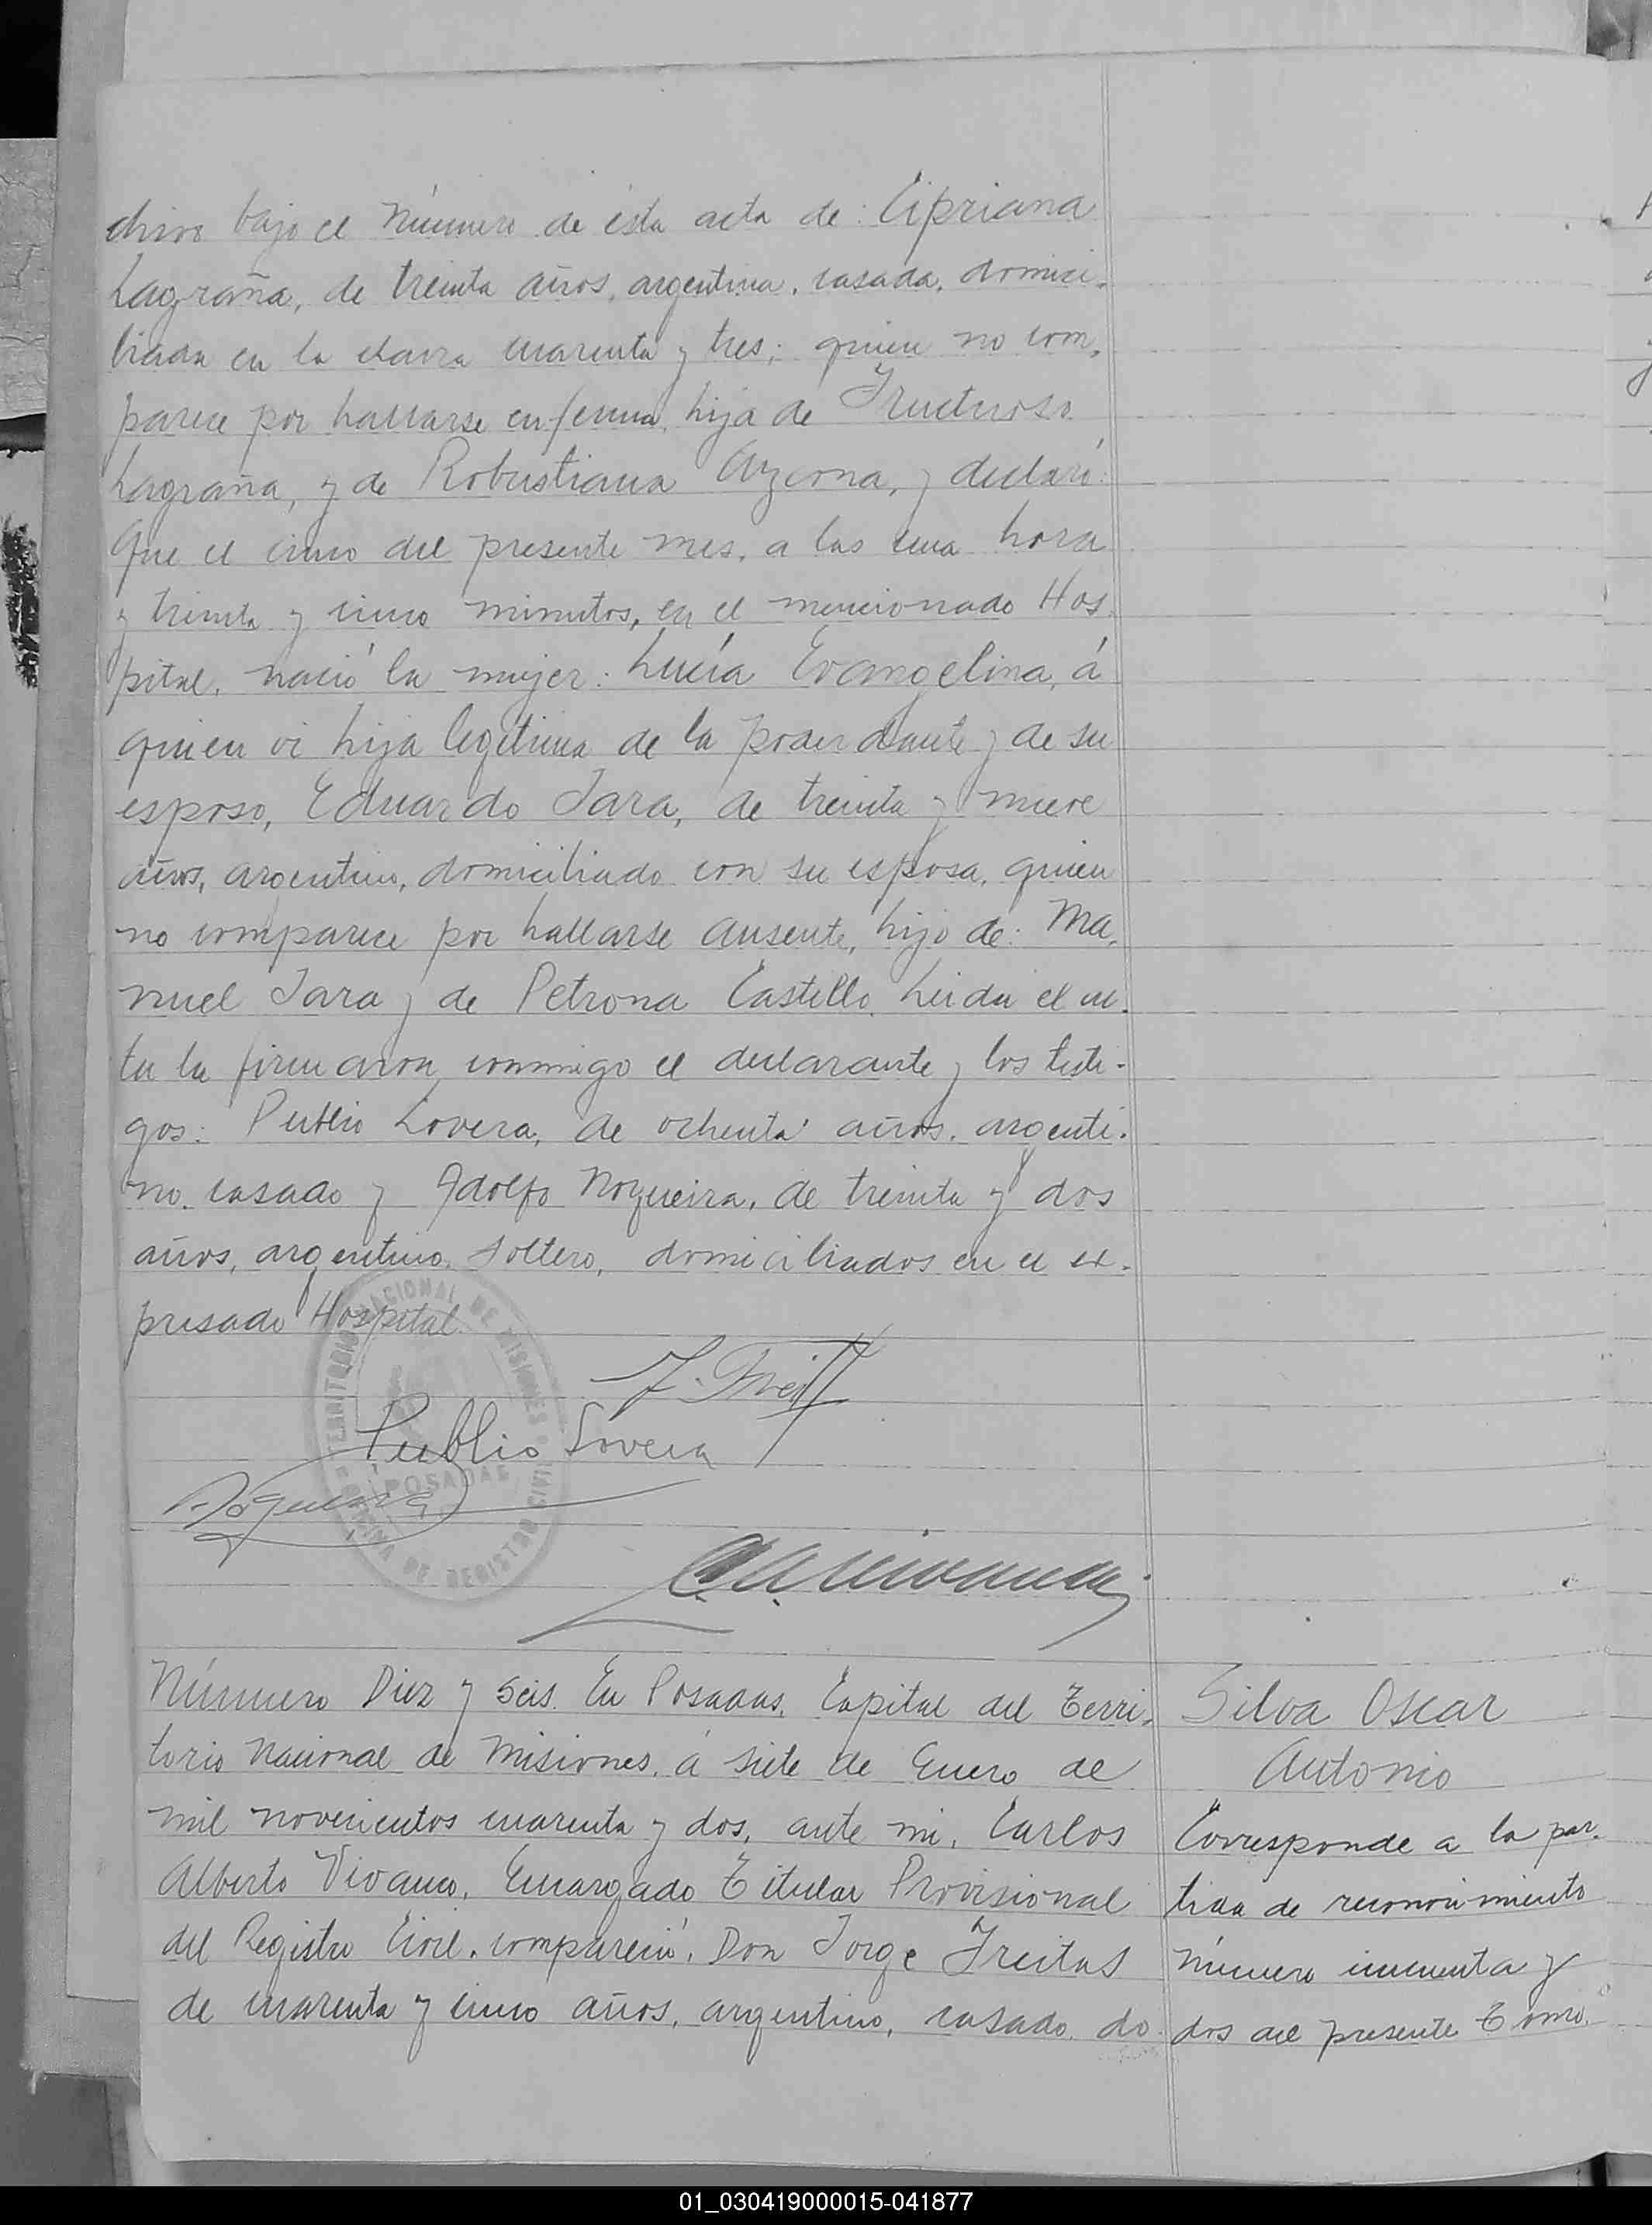 chivo bajo el número de ésta acta de: Cipriana
Lagraña, de treinta años, argentina, casada, domici-
liada en la chacra cuarenta y tres; quien no com-
parece por hallarse enferma, hija de Fructuoso
Lagraña, y de Robustiana Azcona, y declaró:
Que el cinco del presente mes, a las una hora
y treinta y cinco minutos, en el mencionado Hos-
pital, nació la mujer: Lucía Evangelina, á
quien vi hija legítima de la poderdante y de su
esposo, Eduardo Jara, de treinta y nueve
años, argentino, domiciliado con su esposa, quien
no comparece por hallarse ausente, hijo de: Ma-
nuel Jara y de Petrona Castillo. Leída el ac-
ta la firmaron conmigo el declarante y los testi-
gos: Publio Lovera, de ochenta años, argenti-
no, casado y Adolfo Nogueira, de treinta y dos
años, argentino, soltero, domiciliados en el ex-
presado Hospital.
TERRITORIO NACIONAL DE MISIONES
POSADAS
OFICINA DE REGISTRO CIVIL
Publio Lovera
Nogueira
Número Diez y Seis. En Posadas, Capital del Terri-
torio Nacional de Misiones, á siete de Enero de
mil novecientos cuarenta y dos, ante mi, Carlos
Alberto Vivanco, Encargado Titular Provisional
del Registro Civil, compareció, Don Jorge Freitas
de cuarenta y cinco años, argentino, casado, do
Silva Oscar
Antonio
Corresponde a la par-
tida de reconocimiento
número cincuenta y
dos del presente Tomo.
01_030419000015-041877